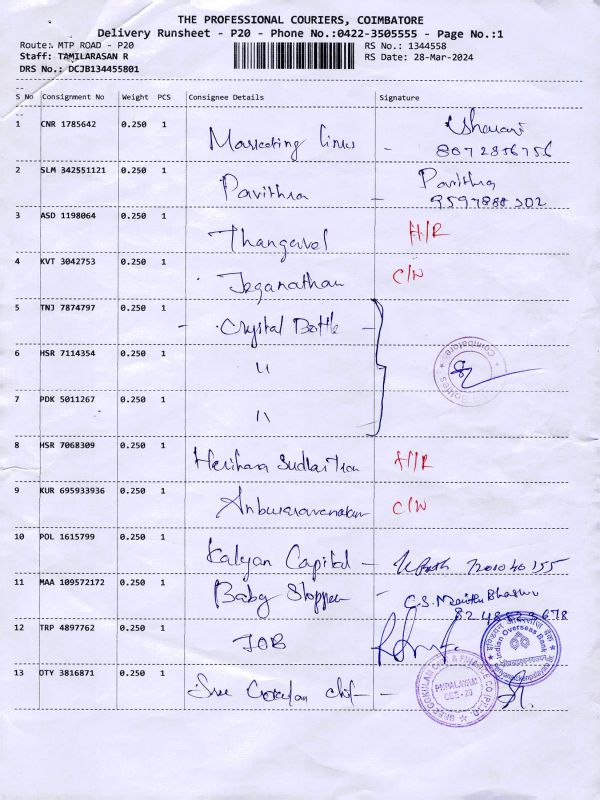 THE PROFESSIONAL COURIERS, COIMBATORE
Delivery Runsheet - P20 - Phone No.:0422-3505555 - Page No.:1
Route: MTP ROAD - P20
RS No.: 1344558
Staff: TAMILARASAN R
RS Date: 28-Mar-2024
DRS No.: DCJB134455801
S No Consignment No Weight PCS Consignee Details Signature
1 CNR 1785642 0.250 1 Marketing links -
8072856756
2 SLM 342551121 0.250 1 Pavithra - Pavithra
9597880302
3 ASD 1198064 0.250 1 Thangavel H/R
4 KVT 3042753 0.250 1 Jeganathan C/N
5 TNJ 7874797 0.250 1 - Crystal Bottle -
6 HSR 7114354 0.250 1 "
Coimbatore
7 PDK 5011267 0.250 1 "
8 HSR 7068309 0.250 1 Harihara H/R
9 KUR 695933936 0.250 1 C/N
10 POL 1615799 0.250 1 Kalyan Capital - 7201040155
11 MAA 109572172 0.250 1 Baby Shoppee - G.S.
8248829678
12 TRP 4897762 0.250 1 IOB
Indian Overseas Bank
13 OTY 3816871 0.250 1 Sree Gokulam chit -
SREE GOKULAM CHIT & FINANCE CO (P) LTD
PNPALAYAM
CBE-20